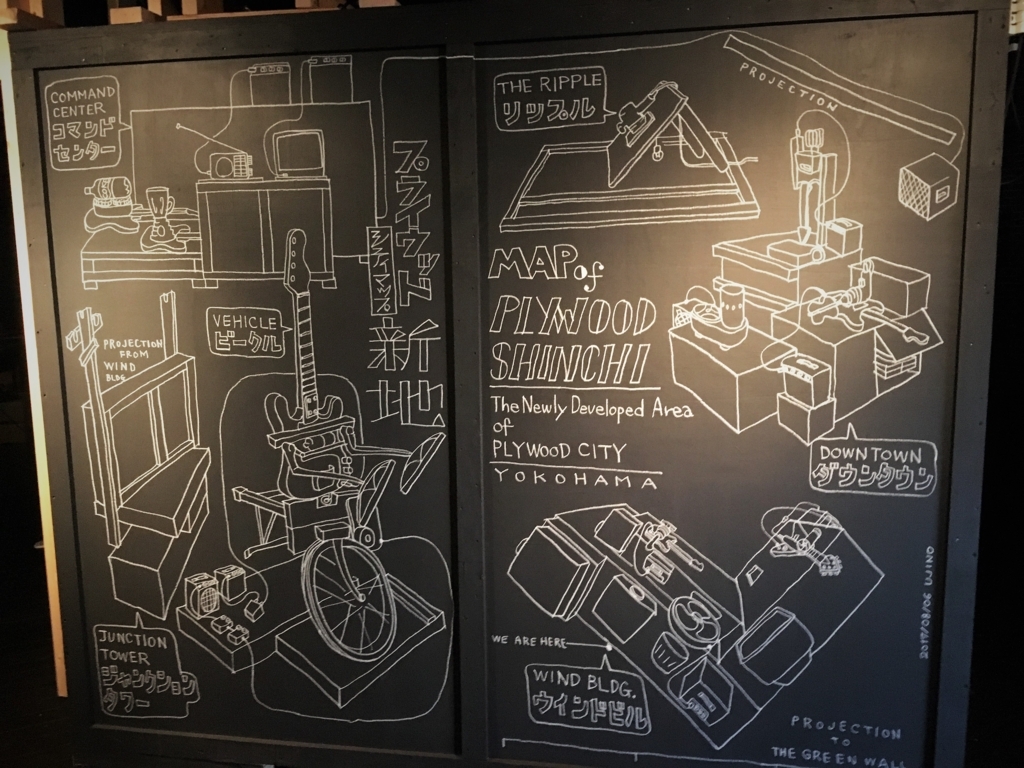 COMMAND
CENTER
コマンド
センター
プライウッド
新地
VEHICLE
ビークル
PROJECTION
FROM
WIND
BLDG.
JUNCTION
TOWER
ジャンクション
タワー
THE RIPPLE
リップル
PROJECTION
MAP of
PLYWOOD
SHINCHI
The Newly Developed Area
of
PLYWOOD CITY
YOKOHAMA
DOWNTOWN
ダウンタウン
WE ARE HERE
WIND BLDG.
ウインドビル
2017/08/06 WIND
PROJECTION
TO
THE GREEN WALL